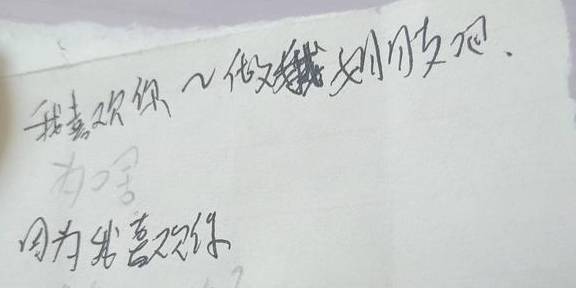 我喜欢你~做我朋友吧.
为啥
因为我喜欢你